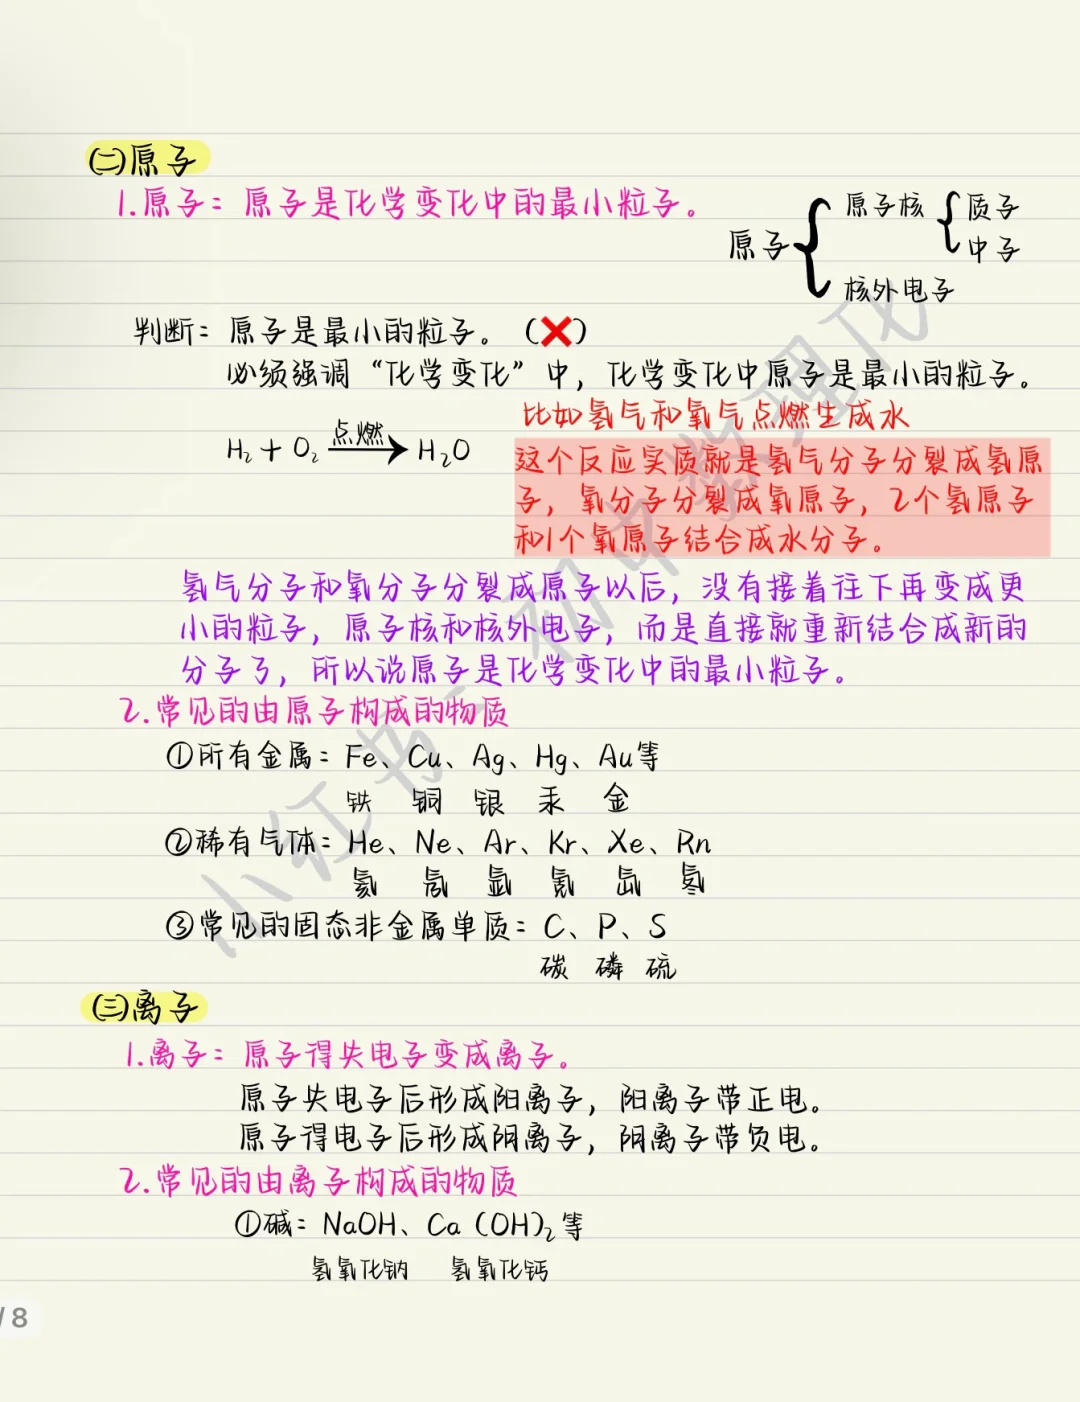 (二)原子
1.原子：原子是化学变化中的最小粒子。
原子
原子核
质子
中子
核外电子
判断：原子是最小的粒子。（❌）
必须强调“化学变化”中，化学变化中原子是最小的粒子。
比如氢气和氧气点燃生成水
H₂ + O₂ 点燃→ H₂O
这个反应实质就是氢气分子分裂成氢原
子，氧分子分裂成氧原子，2个氢原子
和1个氧原子结合成水分子。
氢气分子和氧分子分裂成原子以后，没有接着往下再变成更
小的粒子，原子核和核外电子，而是直接就重新结合成新的
分子了，所以说原子是化学变化中的最小粒子。
2.常见的由原子构成的物质
①所有金属：Fe、Cu、Ag、Hg、Au等
铁 铜 银 汞 金
②稀有气体：He、Ne、Ar、Kr、Xe、Rn
氦 氖 氩 氪 氙 氡
③常见的固态非金属单质：C、P、S
碳 磷 硫
(三)离子
1.离子：原子得失电子变成离子。
原子失电子后形成阳离子，阳离子带正电。
原子得电子后形成阴离子，阴离子带负电。
2.常见的由离子构成的物质
①碱：NaOH、Ca(OH)₂等
氢氧化钠 氢氧化钙
/8
小红书：初中数理化